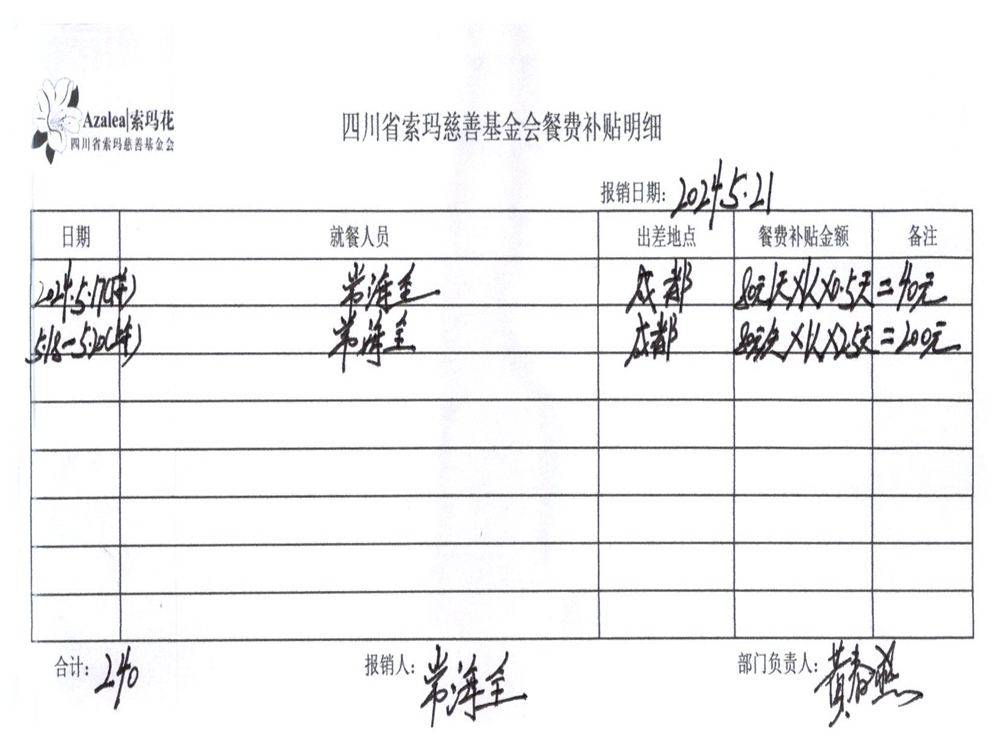 Azalea|索玛花
四川省索玛慈善基金会
四川省索玛慈善基金会餐费补贴明细
报销日期: 2024.5.21
日期 就餐人员 出差地点 餐费补贴金额 备注
2024.5.17(下午) 常海圭 成都 80元/天×1人×0.5天=40元
5.18-5.20(上午) 常海圭 成都 80元/天×1人×2.5天=200元
合计: 240 报销人: 常海圭 部门负责人: 黄春燕